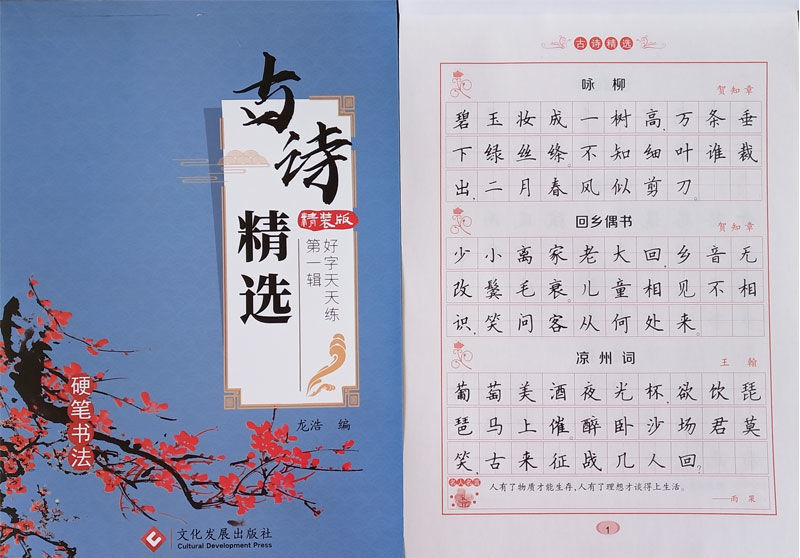 古诗
精选
精装版
好字天天练
第一辑
龙浩 编
硬笔书法
文化发展出版社
Cultural Development Press
古诗精选
咏柳
贺知章
碧玉妆成一树高,万条垂
下绿丝绦。不知细叶谁裁
出,二月春风似剪刀。
回乡偶书
贺知章
少小离家老大回,乡音无
改鬓毛衰。儿童相见不相
识,笑问客从何处来。
凉州词
王翰
葡萄美酒夜光杯,欲饮琵
琶马上催。醉卧沙场君莫
笑,古来征战几人回。
名人名言
人有了物质才能生存,人有了理想才谈得上生活。
——雨果
1